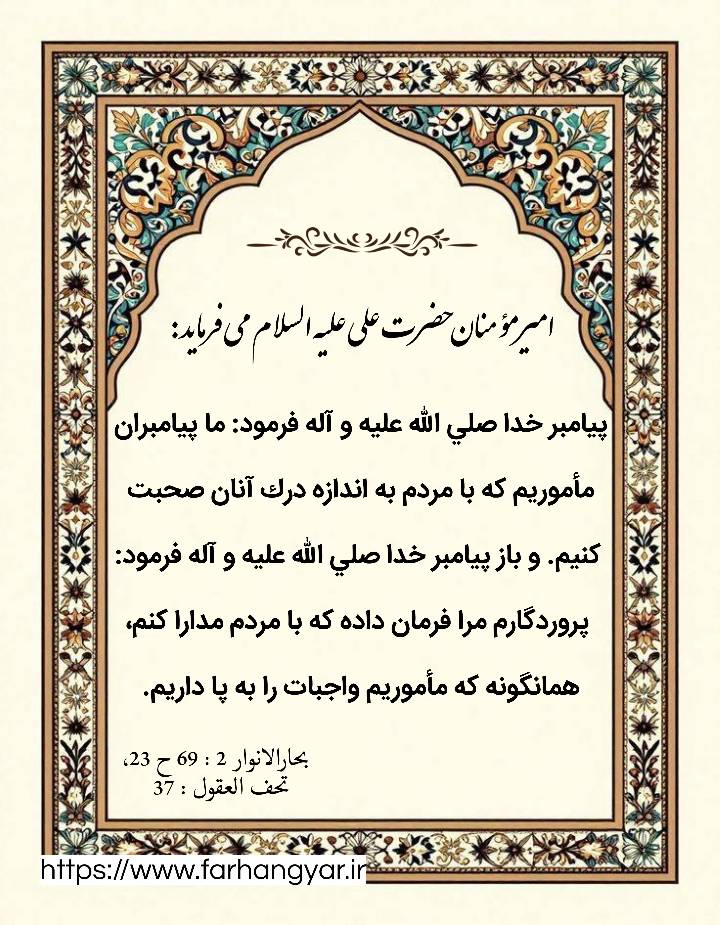 امیر مؤمنان حضرت علی علیه السلام می فرماید:
پیامبر خدا صلي الله علیه و آله فرمود: ما پیامبران
مأموریم که با مردم به اندازه درك آنان صحبت
کنیم. و باز پیامبر خدا صلي الله علیه و آله فرمود:
پروردگارم مرا فرمان داده که با مردم مدارا کنم،
همانگونه که مأموریم واجبات را به پا داریم.
بحارالانوار 2 : 69 ح 23،
تحف العقول : 37
https://www.farhangyar.ir